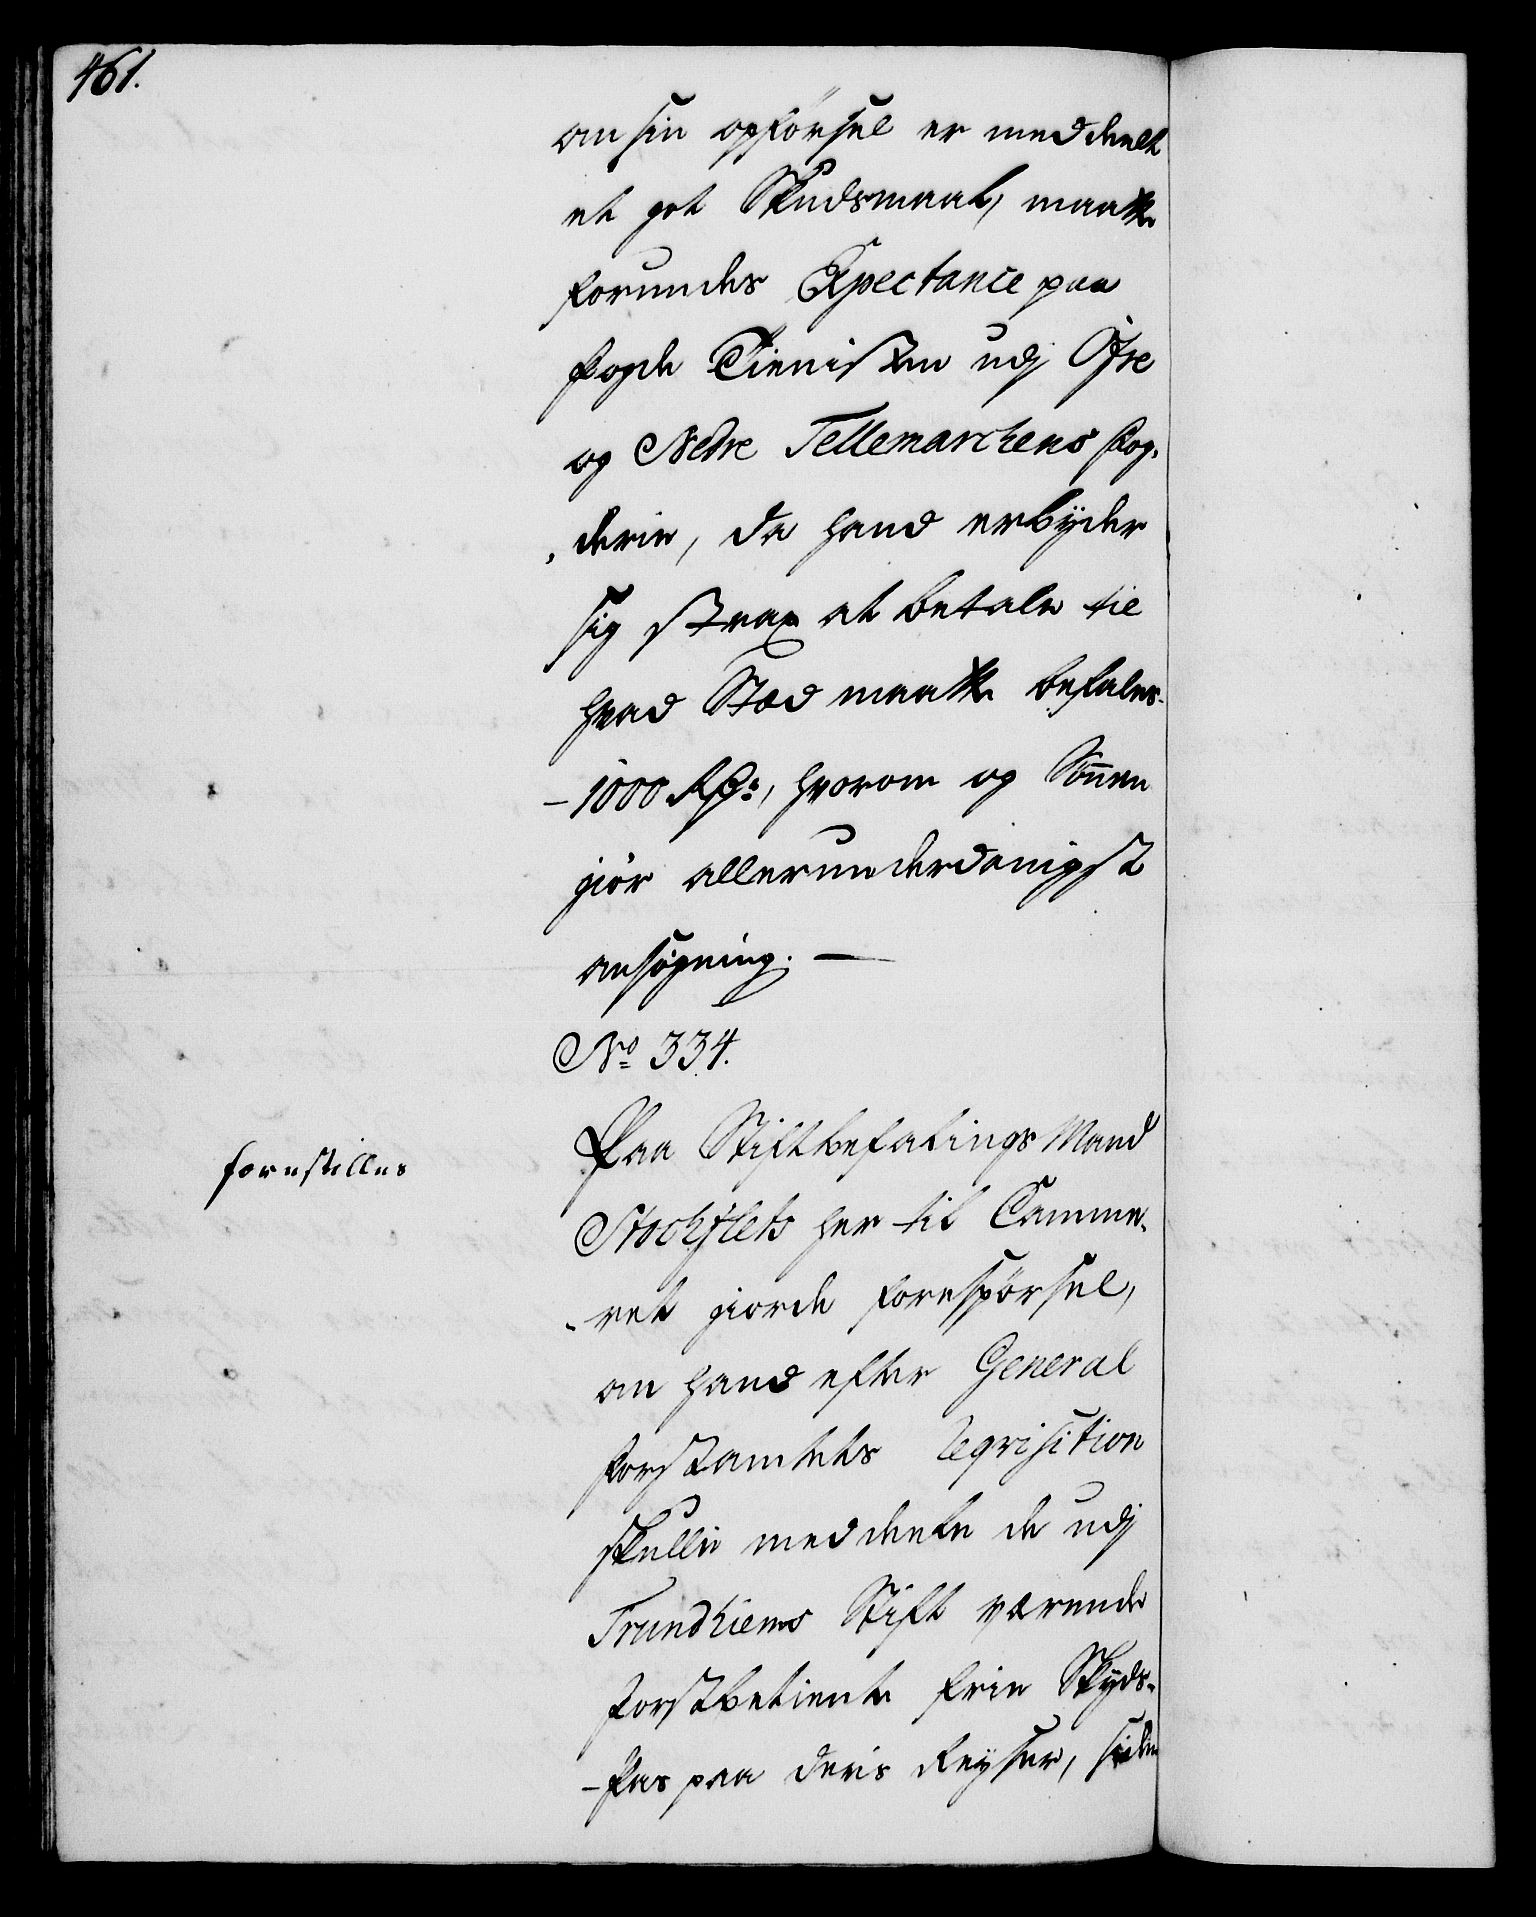 461.
om sin opførsel er meddeelt
et got Skudsmaal, maatte
forundes Expectance paa
foged Tienisten udj Øfre
og Nedre Tellemarchens fog-
-derie, da hand erbyder
sig strax at betale til
hvad Stæd maatte befales
- 1000 Rdr:, hvorom og Sönnen
giör allerunderdanigst
ansøgning. —
No 334.
forestilles
Paa Stiftbefalings Mand
Stockflets her til Camme-
-ret giorde forespörsel,
om hand efter General
forstamtets reqvisition
skulle meddeele de udj
Trundhiems Stift værende
forstbetiente frie Skyds-
-Pas paa deris Reyser, siden